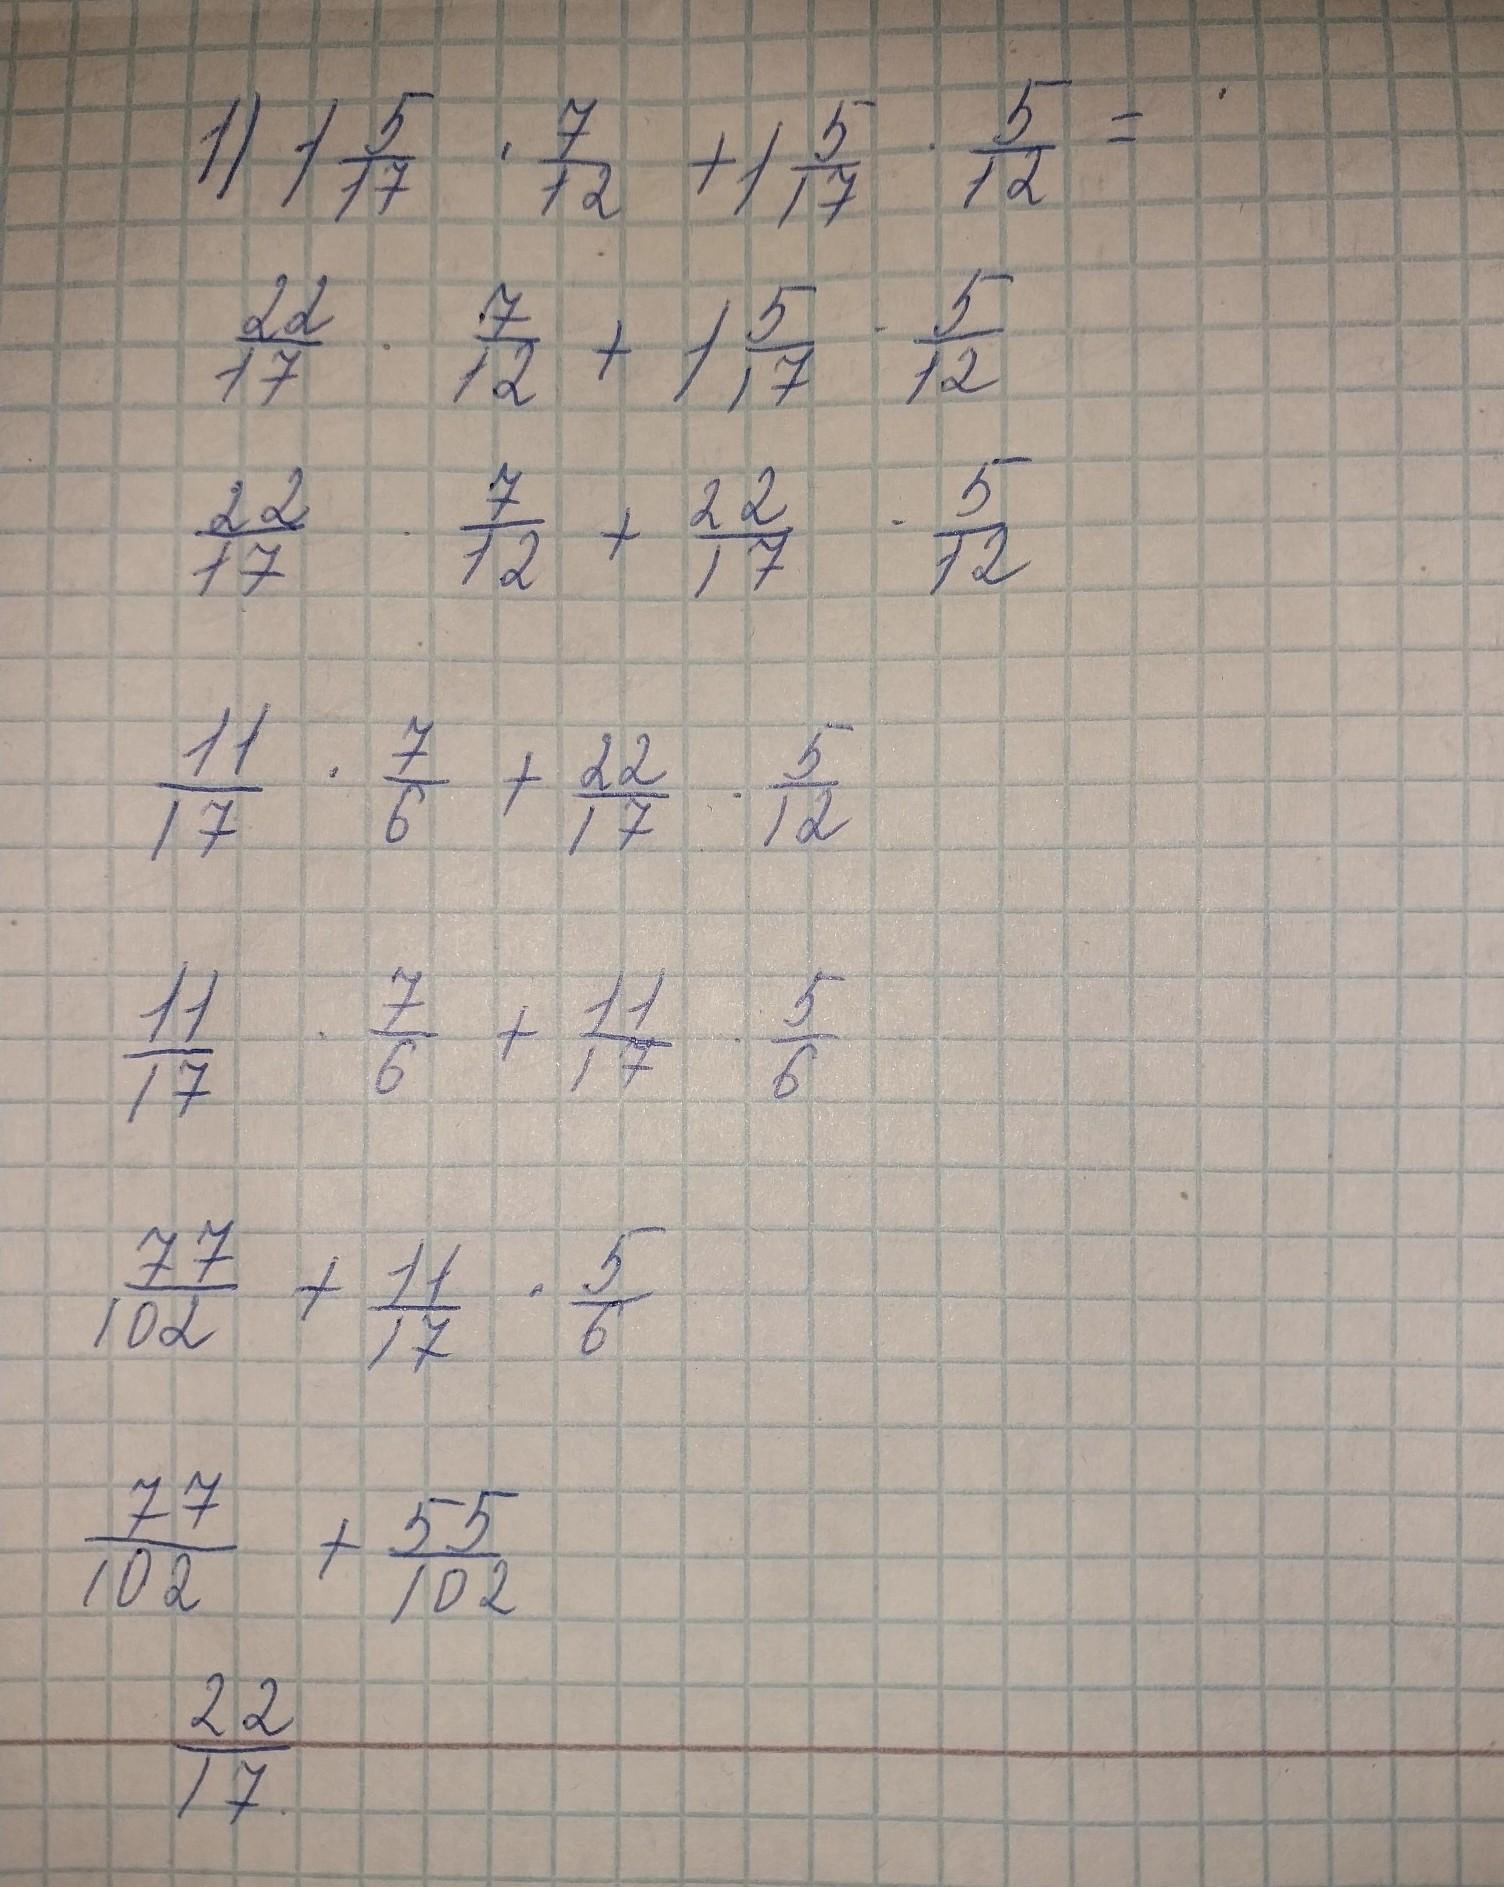 1) 1 5/17 · 7/12 + 1 5/17 · 5/12 =
22/17 · 7/12 + 1 5/17 · 5/12
22/17 · 7/12 + 22/17 · 5/12
11/17 · 7/6 + 22/17 · 5/12
11/17 · 7/6 + 11/17 · 5/6
77/102 + 11/17 · 5/6
77/102 + 55/102
22/17